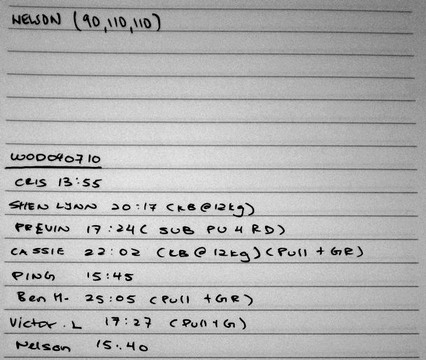 NELSON (90,110,110)
WOD090710
CRIS 13:55
SHEN LYNN 20:17 (KB@12kg)
PREVIN 17:24 ( SUB PU 4 RD)
CASSIE 22:02 (KB @ 12kg) (Pull + GR)
PING 15:45
Ben H. 25:05 (Pull +GR)
Victor. L 17:27 (Pull+G)
Nelson 15:40